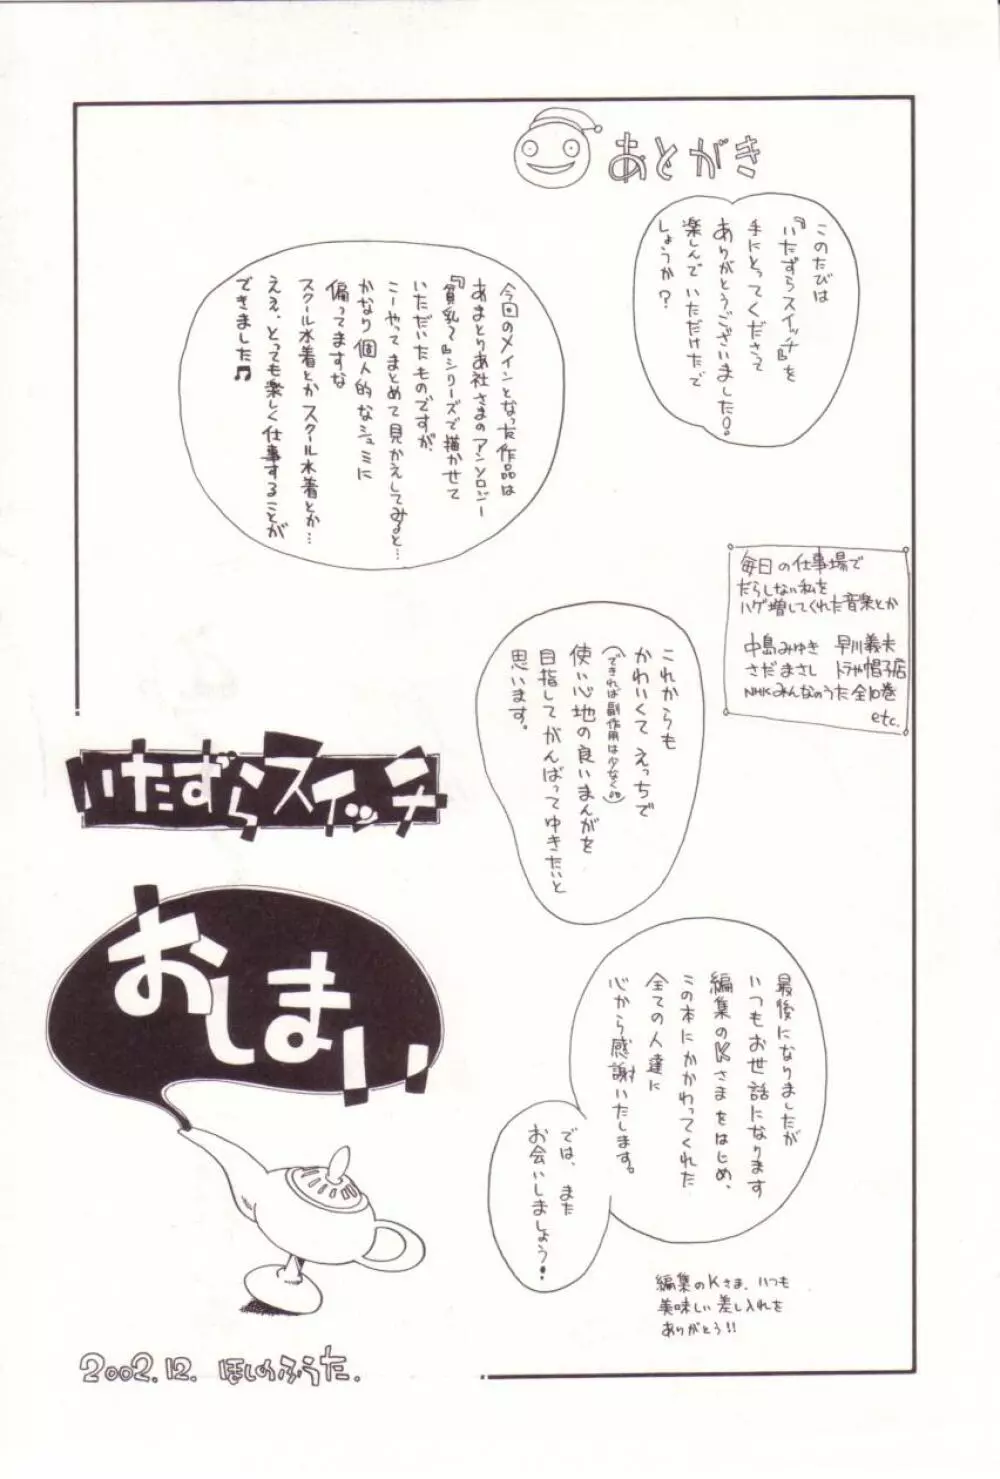 あとがき
このたびは
『いたずらスイッチ』を
手にとってくださって
ありがとうございました!
楽しんでいただけたで
しょうか?
今回のメインとなった作品は
あまとりあ社さまのアンソロジー
『貧乳て』シリーズで描かせて
いただいたものですが、
こーやってまとめて見かえしてみると…
かなり個人的なシュミに
偏ってますな
スクール水着とかスクール水着とか…
ええ、とっても楽しく仕事することが
できました♫
毎日の仕事場で
だらしない私を
ハゲ増してくれた音楽とか
中島みゆき 早川義夫
さだまさし トラや帽子店
NHKみんなのうた全10巻
etc.
これからも
かわいくてえっちで
(できれば副作用は少なく)
使い心地の良いまんがを
目指してがんばってゆきたいと
思います。
いたずらスイッチ
おしまい
最後になりましたが
いつもお世話になります
編集のKさまをはじめ、
この本にかかわってくれた
全ての人達に
心から感謝いたします。
では、また
お会いしましょう!
編集のKさま、いつも
美味しい差し入れを
ありがとう!!
2002.12. ほしのふうた.